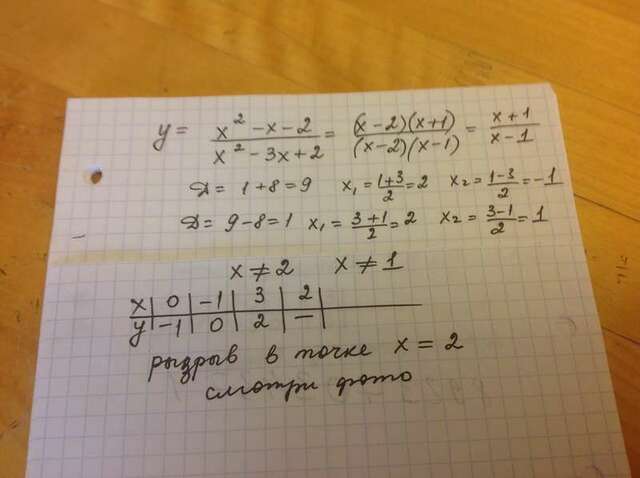 y = x² - x - 2 / x² - 3x + 2 = (x - 2)(x + 1) / (x - 2)(x - 1) = x + 1 / x - 1
D = 1 + 8 = 9 x₁ = 1 + 3 / 2 = 2 x₂ = 1 - 3 / 2 = -1
D = 9 - 8 = 1 x₁ = 3 + 1 / 2 = 2 x₂ = 3 - 1 / 2 = 1
x ≠ 2 x ≠ 1
x | 0 | -1 | 3 | 2 |
y | -1 | 0 | 2 | — |
рызрыв в точке x = 2
смотри фото